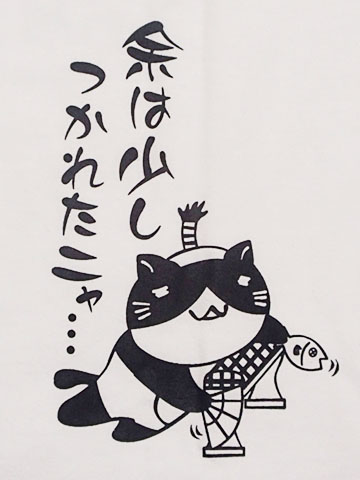 余は少し
つかれたニャ…